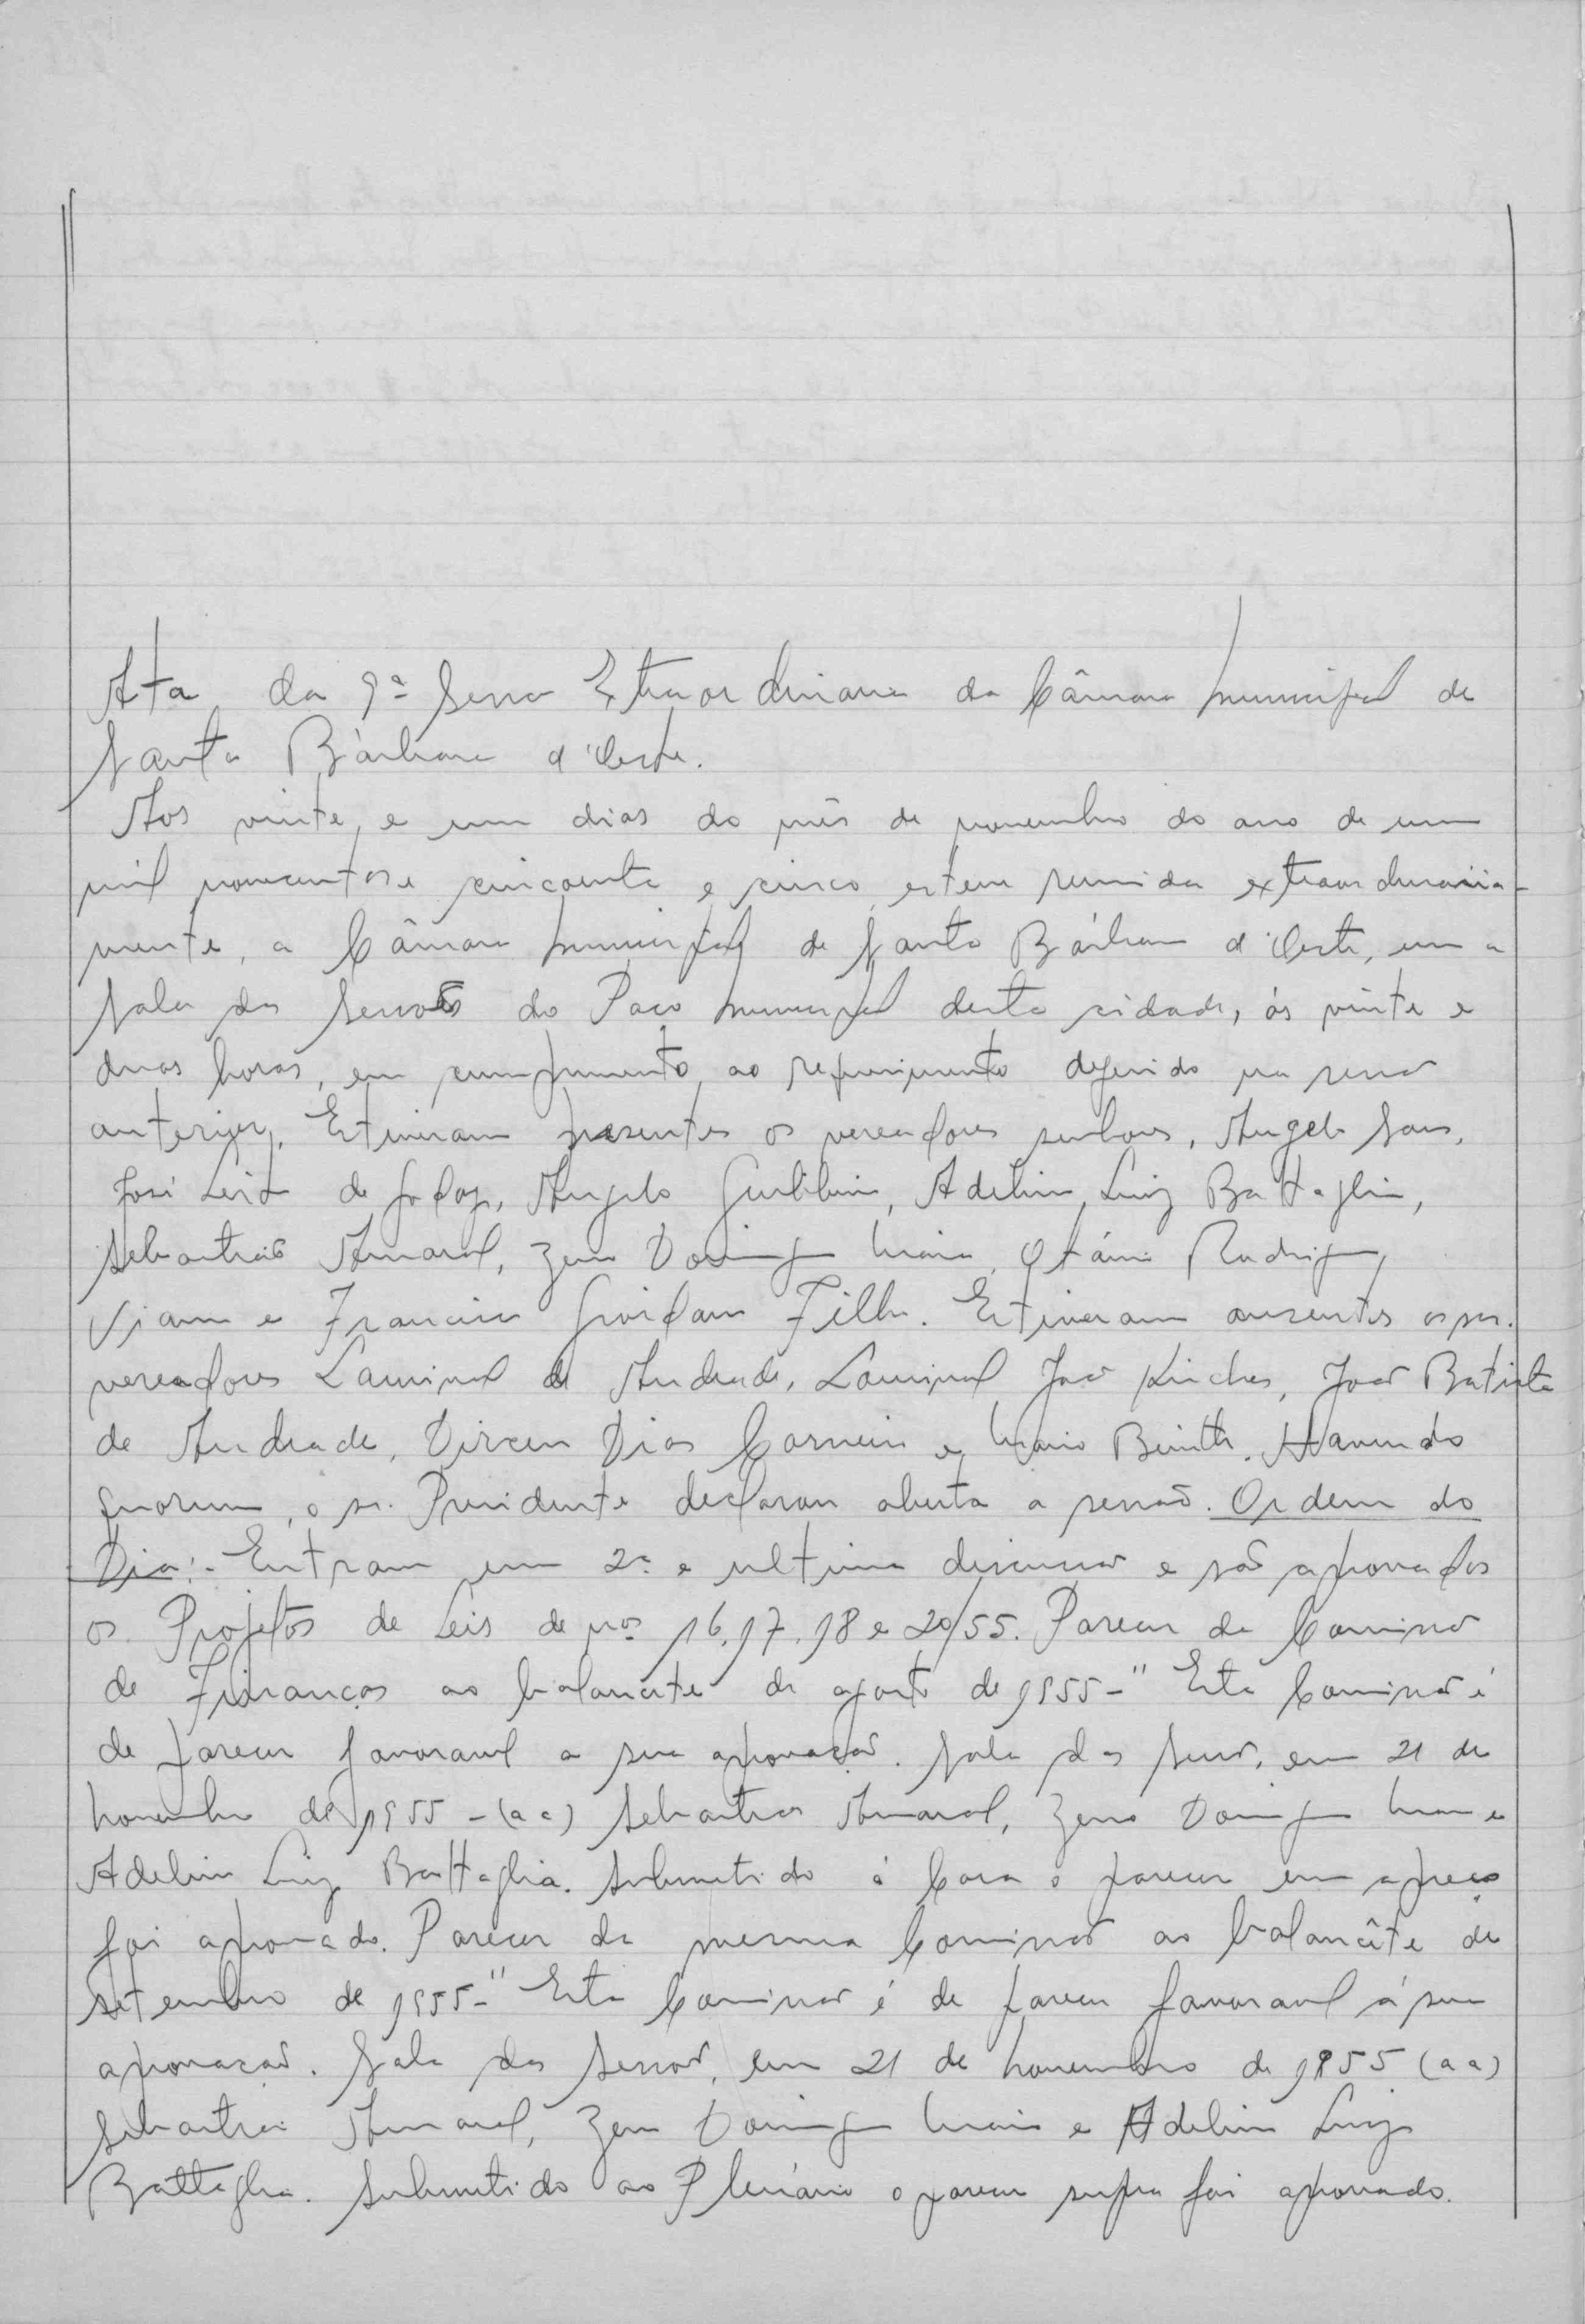 Ata da 9ª Sessão Extraordinaria da Câmara Municipal de
Santa Bárbara d'Oeste.
Aos vinte, e um dias do mês de novembro do ano de um
mil novecentos e cincoenta e cinco, esteve reunida extraordinaria-
mente, a Câmara Municipal de Santa Bárbara d'Oeste, em a
Sala das Sessões do Paço Municipal desta cidade, ás vinte e
duas horas, em cumprimento, ao requerimento deferido na sessão
anterior. Estiveram presentes os vereadores senhores, Angelo Sans,
José Leite de Godoy, Angelo Giubbina, Adelino Luiz Battaglia,
Sebastião Amaral, Zeno Domingues Maia, Otávio Rodrigues
Viana e Francisco Giordano Filho. Estiveram ausentes os srs.
vereadores Laurival de Andrade, Lourival João Kirche, João Batista
de Andrade, Dirceu Dias Carneiro e Mario Benith. Havendo
quorum, o sr. Presidente declarou aberta a sessão. Ordem do
Dia:- Entram em 2ª e ultima discussão e são aprovados
os Projetos de Leis de nos 16, 17, 18 e 20/55. Parecer da Comissão
de Finanças ao balancete de agosto de 1955-" Esta Comissão é
de parecer favoravel a sua aprovação. Sala das Sessão, em 21 de
Novembro de 1955 - (aa) Sebastião Amaral, Zeno Domingues Maia e
Adelino Luiz Battaglia. Submetido á Casa o parecer em apreço
foi aprovado. Parecer da mesma Comissão ao balancête de
Setembro de 1955-" Esta Comissão é de parecer favoravel á sua
aprovação. Sala das Sessão, em 21 de novembro de 1955 (aa)
Sebastião Amaral, Zeno Domingues Maia e Adelino Luiz
Battaglia. Submetido ao Plenário o parecer supra foi aprovado.